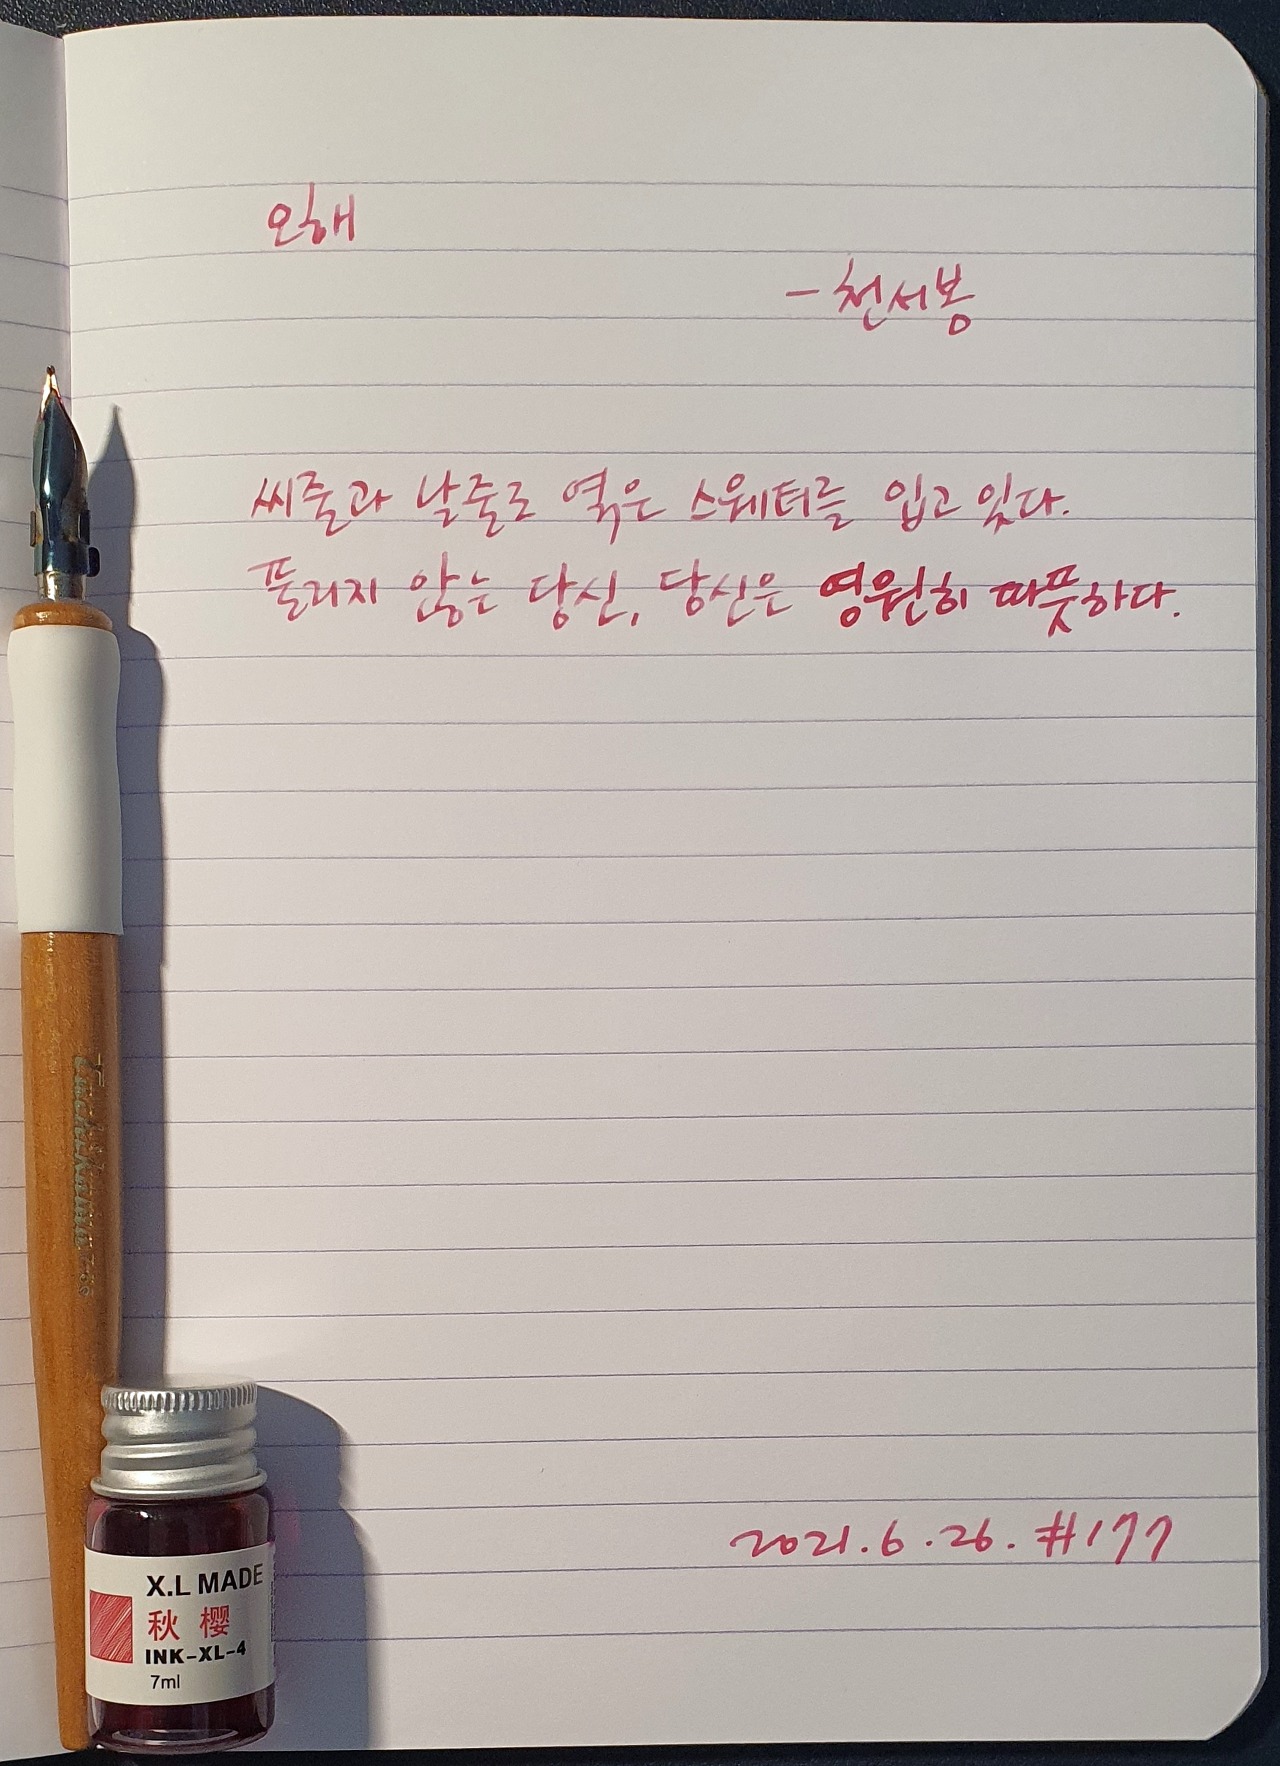 오해
- 천서봉
씨줄과 날줄로 엮은 스웨터를 입고 있다.
풀리지 않는 당신, 당신은 영원히 따뜻하다.
2021.6.26. #177
Tachikawa T-36
X.L MADE
秋樱
INK-XL-4
7ml